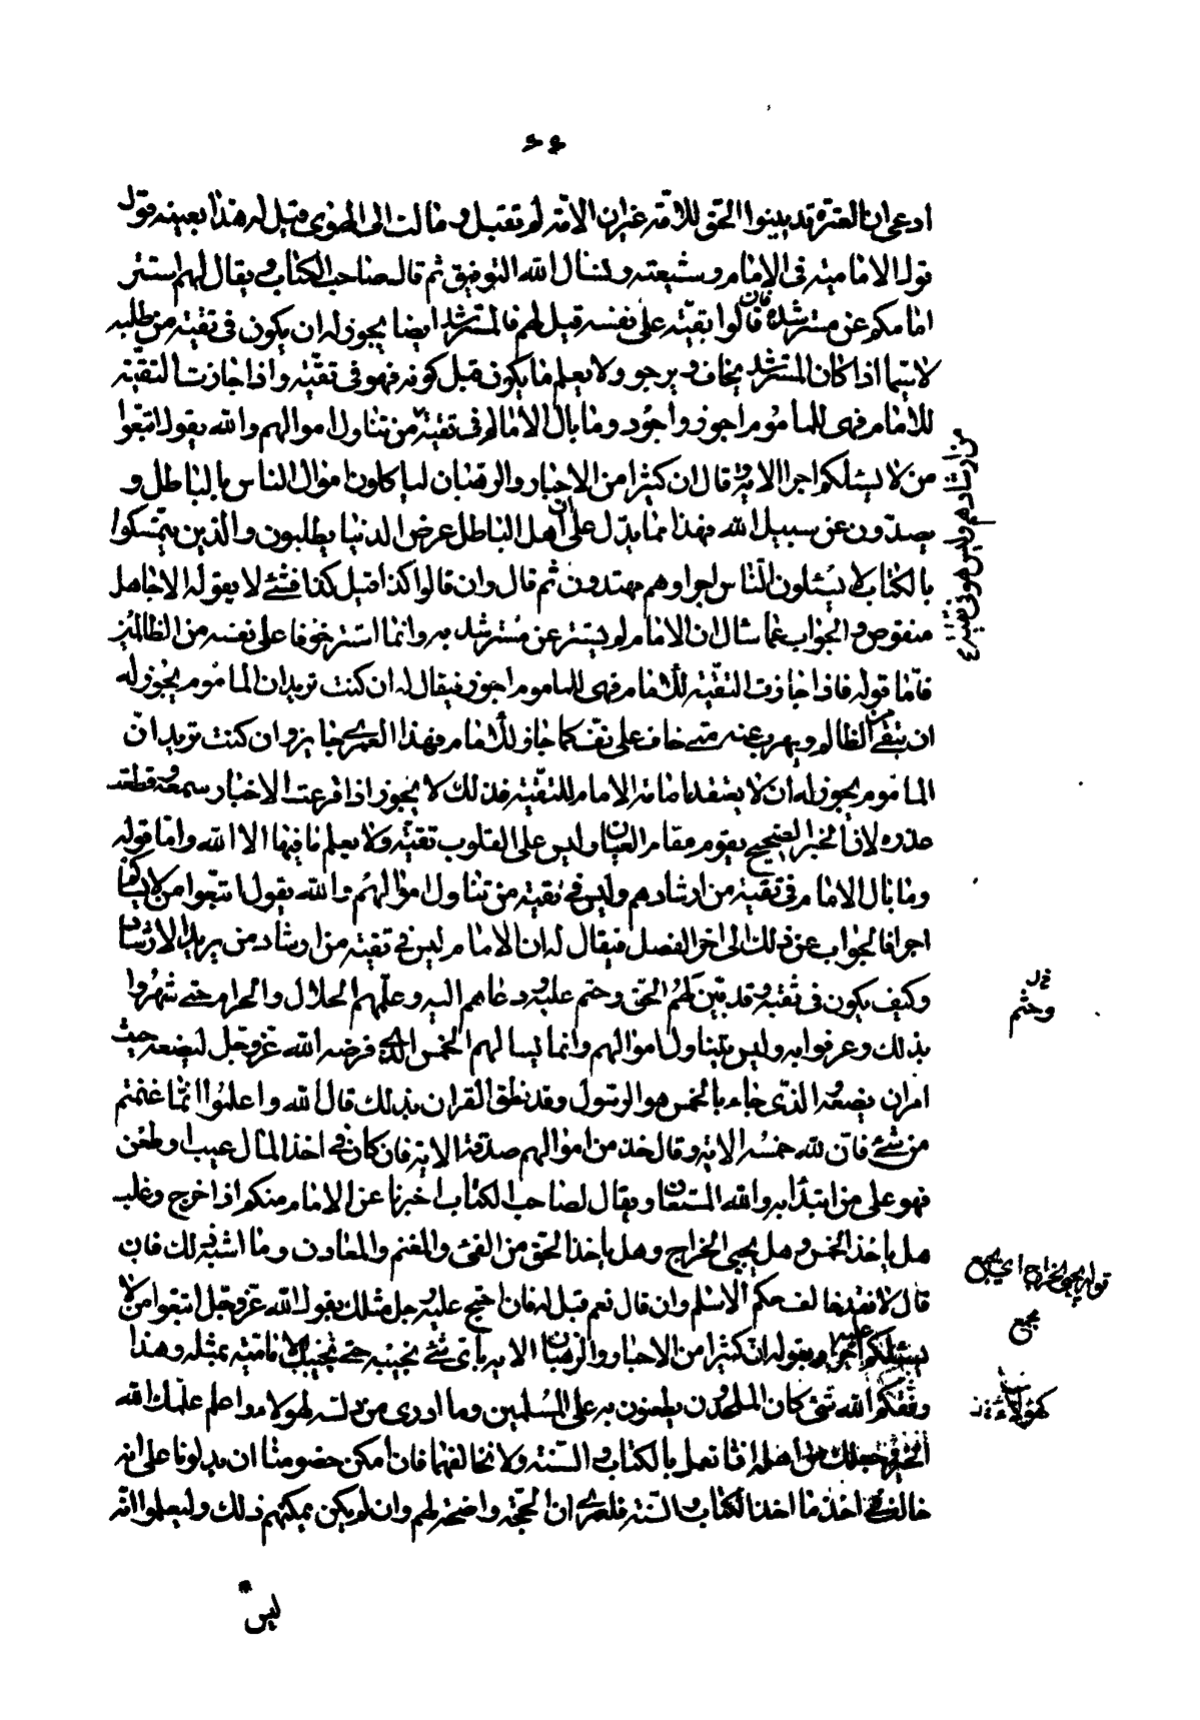 ٤٤
ادعى ان العترة قد بينوا الحق للامة غير ان الامة لم تقبل و مالت الى الهوى قيل له هذا بعينه قول
قول الامامية فى الامام و شيعته و نسال الله التوفيق ثم قال صاحب الكتاب و يقال لهم استتر
امامكم عن مسترشده فان قالوا تقيّة على نفسه قيل لهم فالمسترشد ايضا يجوز له ان يكون فى تقيّة من طلبه
لا سيّما اذا كان المسترشد يخاف و يرجو و لا يعلم ما يكون قبل كونه فهو فى تقيّة و اذا جازت التقيّة
للامام فهى للماموم اجوز و اجود و ما بال الامام فى تقيّة من تناول اموالهم و الله يقول اتبعوا
من لا يسئلكم اجرا الاية و قال ان كثيرا من الاحبار و الرهبان لياكلون اموال الناس بالباطل و
يصدّون عن سبيل الله فهذا ممّا يدّل على ان اهل الباطل عرض الدنيا يطلبون و الذين يتمسّكوا
بالكتاب لا يسئلون النّاس اجرا و هم مهتدون ثم قال و ان قالوا كذا قيل كذا فشئ لا يقوله الا جاهل
منقوص و الجواب عمّا سال ان الامام لم يستتر عن مسترشده و انما استتر خوفا على نفسه من الظالمين
فامّا قوله فاذا جازت التقيّة للامام فهى للماموم اجوز فيقال له ان كنت تريد ان الماموم يجوز له
ان يتقى من الظالم و يهرب عنه متى خاف على نفسه كما جاز للامام فهذا لعمرى جايز و ان كنت تريد انّ
الماموم يجوز له ان لا يعتقد امامة الامام للتقيّة فذلك لا يجوز اذا قرعت الاخبار سمعه و قطعت
عذره لان الخبر الصحيح يقوم مقام العيان و ليس على القلوب تقيّة و لا يعلم ما فيها الا الله و امّا قوله
و ما بال الامام فى تقيّة من ارشادهم و ليس فى تقية من تناول اموالهم و الله يقول اتبعوا من لا يسئلكم
اجرا فالجواب عن ذلك الى اخر الفصل فيقال له ان الامام ليس فى تقية من ارشاد من يريد الارشاد
و كيف يكون فى تقية و قد بيّن لهم الحق و حثم عليه و دعاهم اليه و علّمهم الحلال و الحرام حتى شهروا
بذلك و عرفوا به و ليس يتناول اموالهم و انما يسالهم الخمس الذى فرضه الله عز و جل ليضعه حيث
امر ان يضعه الذى جاء بالخمس هو الرسول و قد نطق القران بذلك قال الله و اعلموا انّما غنمتم
من شئ فانّ لله خمسه الاية و قال خذ من اموالهم صدقة الاية فان كان فى اخذ المال عيب او طعن
فهو على من ابتدأ به و الله المستعان و يقال لصاحب الكتاب اخبرنا عن الامام منكم اذا خرج و غلب
هل ياخذ الخمس و هل يجبى الخراج و هل ياخذ الحق من الفئ و المغنم و المعادن و ما اشبه ذلك فان
قال لا فقد خالف حكم الاسلم و ان قال نعم قيل له فان احتج عليه رجل مثلك بقول الله عز و جل اتبعوا من لا
يسئلكم اجرا و بقوله ان كثيرا من الاحبار و الرهبان الاية باى شئ تجيبه حتى تجيبك الامامية بمثله و هذا
وفّقكم الله شئ كان الملحدون يطعنون به على المسلمين و ما ادرى من دلسه لهولاء و اعلم علّمك الله
الخير و جعلك من اهله انما نعمل بالكتاب و السّنة و لا نخالفهما فان امكن خصومنا ان يدلونا على انه
خالف فى اخذ ما اخذ الكتاب و السّنة فلعمرى ان الحجّة واضحة لهم و ان لم يكن يمكنهم ذلك فليعلموا انّه
ليس
من ارشادهم و ليس هو فى تقية
خ ل
و حثهم
قوله يجبى الخراج اى يجمع
يجمع
لهؤلاء